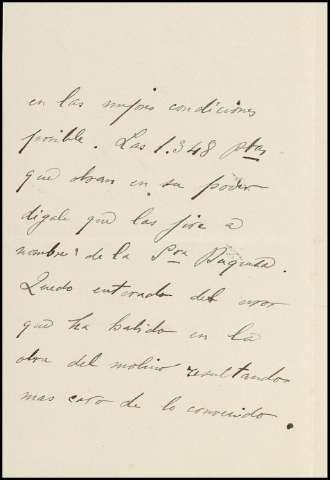 en las mejores condiciones
posible. Las 1.348 ptas
que obran en su poder
digale que las jire a
nombre de la Sra
Quedo enterado del error
que ha habido en la
obra del molino resultandos
mas caro de lo convenido.